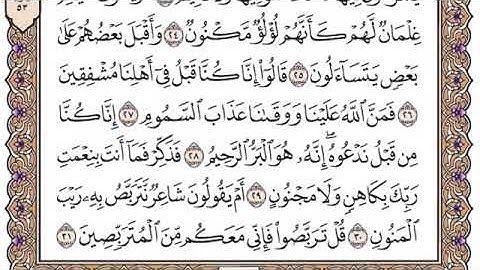 غِلْمَانٌ لَّهُمْ كَأَنَّهُمْ لُؤْلُؤٌ مَّكْنُونٌ ٢٤ وَأَقْبَلَ بَعْضُهُمْ عَلَىٰ
بَعْضٍ يَتَسَآءَلُونَ ٢٥ قَالُوٓا۟ إِنَّا كُنَّا قَبْلُ فِىٓ أَهْلِنَا مُشْفِقِينَ
٢٦ فَمَنَّ ٱللَّهُ عَلَيْنَا وَوَقَىٰنَا عَذَابَ ٱلسَّمُومِ ٢٧ إِنَّا كُنَّا
مِن قَبْلُ نَدْعُوهُ إِنَّهُۥ هُوَ ٱلْبَرُّ ٱلرَّحِيمُ ٢٨ فَذَكِّرْ فَمَآ أَنتَ بِنِعْمَتِ
رَبِّكَ بِكَاهِنٍ وَلَا مَجْنُونٍ ٢٩ أَمْ يَقُولُونَ شَاعِرٌ نَّتَرَبَّصُ بِهِۦ رَيْبَ
ٱلْمَنُونِ ٣٠ قُلْ تَرَبَّصُوا۟ فَإِنِّى مَعَكُم مِّنَ ٱلْمُتَرَبِّصِينَ ٣١